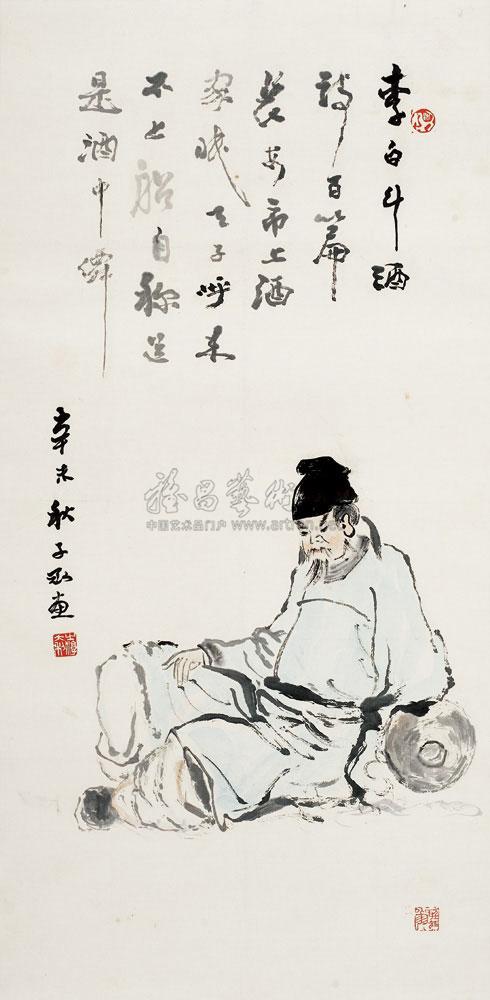 李白斗酒
詩百篇
長安市上酒
家眠天子呼来
不上船自称臣
是酒中僊
辛未秋子画
雅昌藝術
中国艺术品门户 www.artron.net